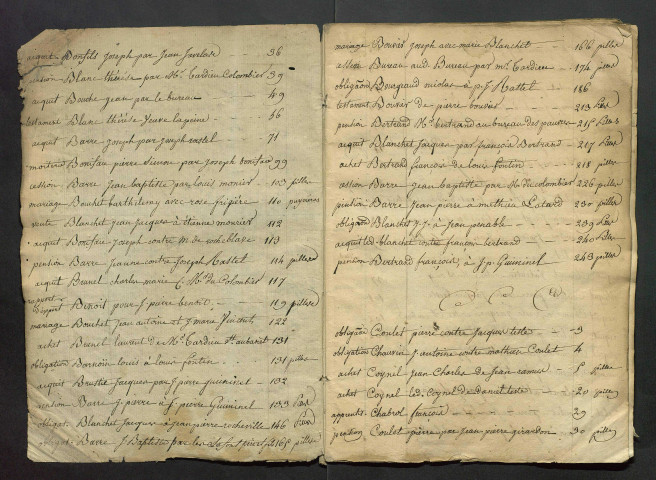 aquit Bonfils Joseph par Jean Javelas 36
cession Blanc thérèse par Mr. Tardieu Colombier 39
aquit Bouche jean par le bureau 49
testament Blanc thérèse veuve lapeine 56
aquit Barre joseph par joseph rastel 71
Bonifau pierre par joseph bonifau 99
cession Barre Jean baptiste par louis monier 103 pilles
mariage Bouchet barthelemy avec rose frigière 110
vente Blanchet Jean Jacques à étienne monier 112
aquit Bonifau Joseph contre M. de rocheblave 113
pention Barre Jeanne contre Joseph Rastel 114 pilles
aquit Brunel charles marie Mr. du Colombier 117
raport Benoit pour J. pierre benoit 119 pilles
mariage Bouchet Jean antoine et J. marie Vincent 122
achet Breuil laurent de Mr. Tardieu d'aubanet 131
obligation Bernoin louis à louis fontin 131 pilles
aquit Brustié Jacques par J. pierre guieninet 132
pention Barre J. pierre à J. pierre Guieninel 135
obligat. Blanchet Jacques à jean pierre rocheville 146
obligat. Barre J. Baptiste par les 165 pilles
mariage Bouvier joseph avec marie Blanchet 166 pilles
cession Bureau aud. Bureau par Mr. Tardieu 174
obligaôn nicolas à p. J. Rastel 186
testament Bouvier de pierre bouvier 213
pention Bertrand Mr. bertrand au bureau des pauvres 215
aquit Blanchet Jacques par françois Bertrand 217
achet Bertrand françois de louis fontin 218 pilles
cession Barre jean baptiste par Mr. du colombier 226 pilles
pention Barre Jean pierre à mathieu Latard 230 pilles
obligaôn Blanchet J. J. à Jean penable 239
aquit led. blanchet contre francois bertrand 240
pention Bertrand françois à J. p. Guieninel 243 pilles
C C C
obligaôn Coulet pierre contre Jacques teste 3
obligation Chauvin J. antoine contre mathieu Coulet 4
achet Coynel jean Charles de jean ramus 5 pilles
achet Coynel led. Coynel de daniel teste 20 pilles
apprentis. Chabrol françois 29
pention Coulet pierre par jean pierre girardon 30 pilles